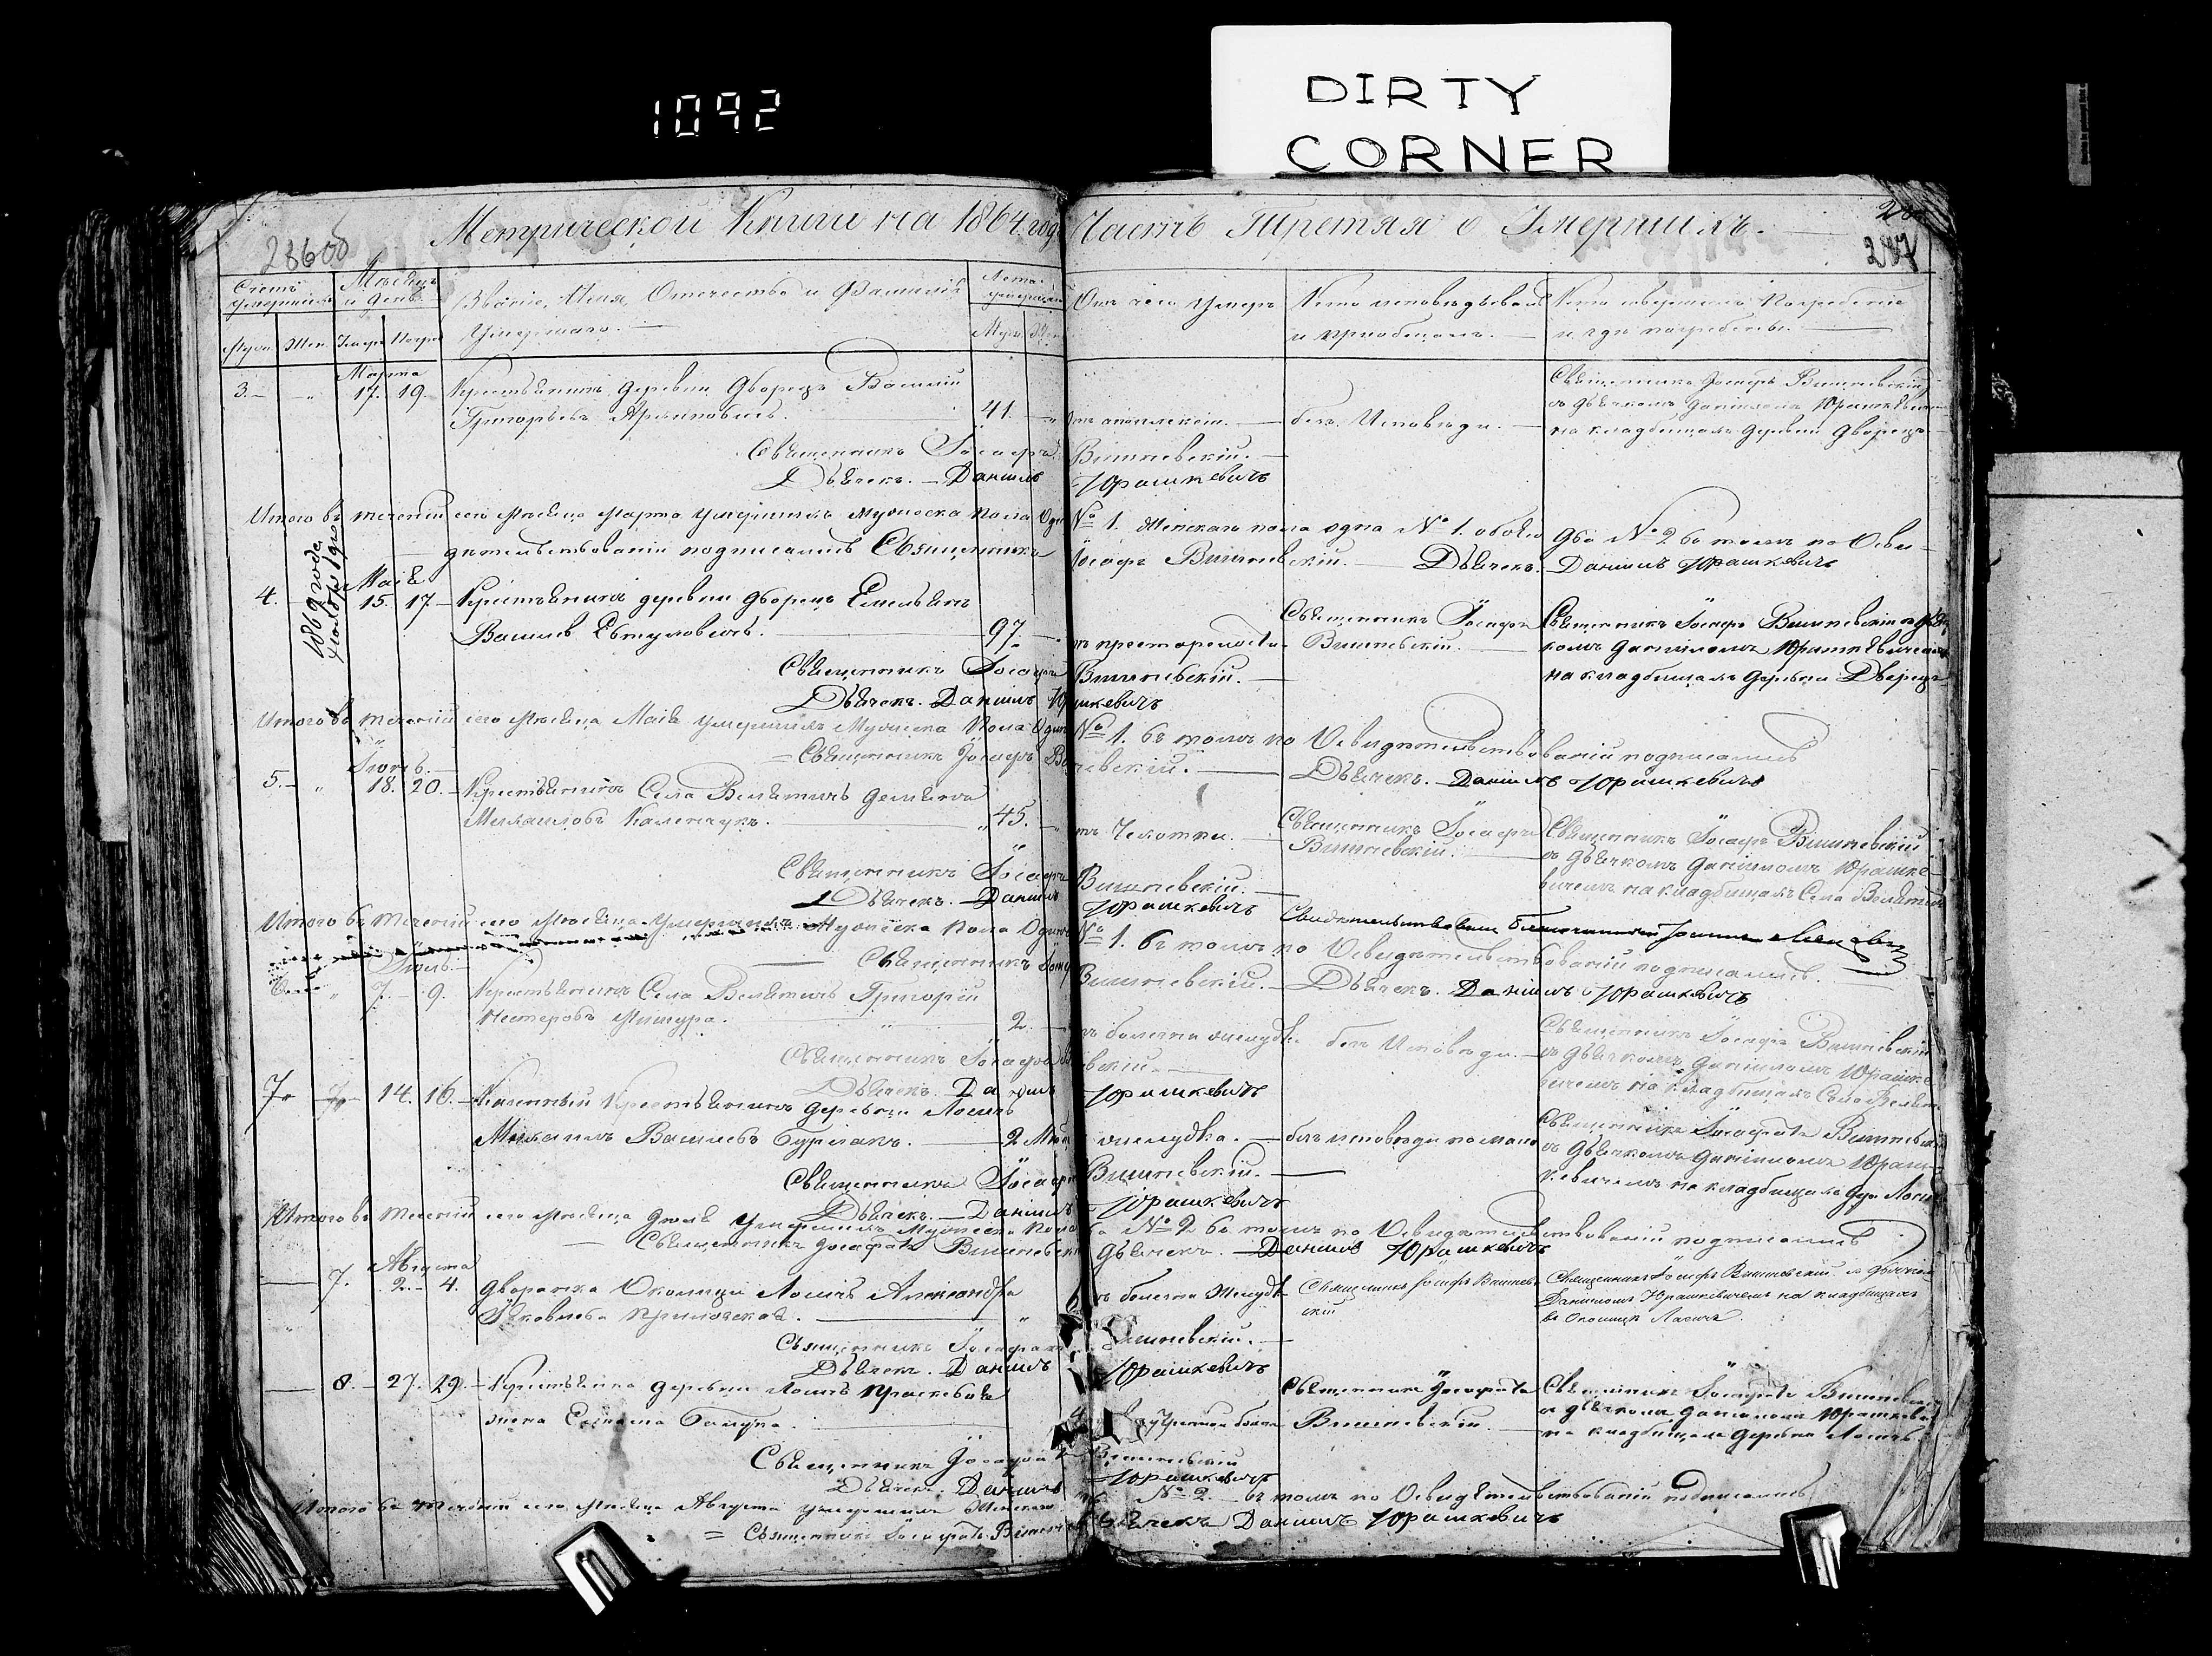 DIRTY
CORNER
1092
286об
287
Метрической Книги на 1864 годъ Часть Третяя о Умершихъ.
Счетъ умершихъ
Мѣсяцъ и день
Званіе, Имя, Отчество и Фамилія Умершаго.
Лета умершаго
Отъ чего Умеръ
Кто исповѣдывалъ и приобщалъ.
Кто совершалъ Погребеніе и гдѣ погребены.
Муж. Жен. Умерш. Погреб.
Муж. Жен.
Марта
3. " 17. 19. Крестьянинъ деревни Дворецъ Василій
Григорьевъ 41. отъ апоплексіи. безъ Исповѣди.
Священникъ Іосафъ Вишневскій
съ дьячкомъ Даніиломъ Юрашкевичемъ
на кладбищахъ деревни Дворецъ
Священникъ Іосафъ Вишневскій.
Дьячекъ. Даніилъ Юрашкевичъ
Итого въ теченіи сего мѣсяца Марта умершихъ мужеска пола Одинъ № 1. женскаго пола одна № 1. обоего два № 2 въ томъ по Осви-
дѣтельствованіи подписались Священникъ Іосафъ Вишневскій. Дьячекъ. Даніилъ Юрашкевичъ
1869 года
Маія
4. 15. 17. Крестьянинъ деревни Дворецъ Емельянъ
Васильевъ 97. отъ престарелости
Священникъ Іосафъ Вишневскій.
Священникъ Іосафъ Вишневскій съ дьяч-
комъ Даніиломъ Юрашкевичемъ
на кладбищахъ деревни Дворецъ
Священникъ Іосафъ Вишневскій.
Дьячекъ. Даніилъ Юрашкевичъ
Итого въ теченіи сего мѣсяца Маія умершихъ Мужеска Пола Одинъ № 1. въ томъ по Освидѣтельствованіи подписались
Священникъ Іосафъ Вишневскій. Дьячекъ. Даніилъ Юрашкевичъ
Іюнь.
5. " 18. 20. Крестьянинъ Села Велятичъ Демянъ
Михаиловъ Каленчукъ. 45. отъ Чехотки.
Священникъ Іосафъ
Вишневскій.
Священникъ Іосафъ Вишневскій
съ дьячкомъ Даніиломъ Юрашке-
вичемъ на кладбищахъ Села Велятичъ
Священникъ Іосафъ Вишневскій.
Дьячекъ. Даніилъ Юрашкевичъ
Свидѣтельствовалъ благочинный
Итого въ теченіи сего мѣсяца умершихъ Мужеска Пола Одинъ № 1. въ томъ по Освидѣтельствованіи подписались
Священникъ Вишневскій. Дьячекъ. Даніилъ Юрашкевичъ
Іюль.
" 7. 9. Крестьянинъ Села Велятичъ Григорій
Нестеровъ 2. отъ болезни желудка безъ Исповѣди.
Священникъ Іосафъ Вишневскій
съ дьячкомъ Даніиломъ Юрашке-
вичемъ на кладбищахъ Села Велят
Священникъ Іосафъ Вишневскій.
Дьячекъ. Даніилъ Юрашкевичъ
7. 14. 16. Казенный Крестьянинъ деревни Лосичъ
Михаилъ Васильевъ Бурлакъ. 2 желудка. безъ исповѣди
Священникъ Іосафатъ Вишневскій
съ дьячкомъ Даніиломъ Юраш-
кевичемъ на кладбищахъ дер
Священникъ Іосафъ Вишневскій.
Дьячекъ. Даніилъ Юрашкевичъ
Итого въ теченіи сего мѣсяца Іюля Умершихъ Мужеска Пола № 2 въ томъ по Освидѣтельствованіи подписались
Священникъ Іосафатъ Вишневскій Дьячекъ. Даніилъ Юрашкевичъ
Августа
7. 2. 4. Дворянка Околицы Лосичъ Александра
Яковлева отъ болезни Желудка
Священникъ Іосифъ Вишнев-
скій
Священникъ Іосифъ Вишневскій съ дьячкомъ
Даніиломъ Юрашкевичемъ на кладбищахъ
въ Околицѣ Лосичъ.
Священникъ Іосафатъ Вишневскій.
Дьячекъ. Даніилъ Юрашкевичъ
8. 27. 29. Крестьянка деревни Лосичъ Прасковія
жена
Священникъ Іосафатъ
Вишневскій.
Священникъ Іосафатъ Вишневскій
съ дьячкомъ Даніиломъ Юрашкеви
на кладбищахъ деревни Лосичъ
Священникъ Іосафатъ Вишневскій
Дьячекъ. Даніилъ Юрашкевичъ
Итого въ теченіи сего мѣсяца Августа умершихъ Женска № 2. въ томъ по Освидѣтельствованіи подписались
Священникъ Іосафатъ Вишневскій Дьячекъ Даніилъ Юрашкевичъ